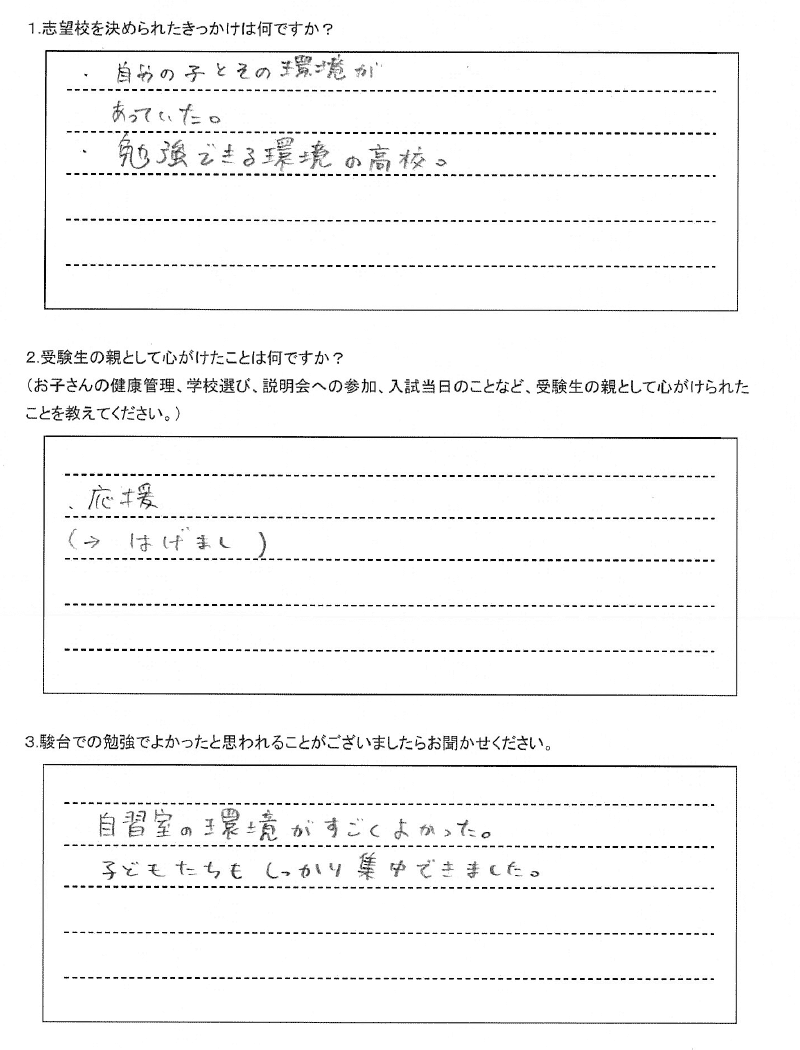 1.志望校を決められたきっかけは何ですか？
・自分の子とその環境が
あっていた。
・勉強できる環境の高校。
2.受験生の親として心がけたことは何ですか？
（お子さんの健康管理、学校選び、説明会への参加、入試当日のことなど、受験生の親として心がけられた
ことを教えてください。）
、応援
(→ はげまし )
3.駿台での勉強でよかったと思われることがございましたらお聞かせください。
自習室の環境がすごくよかった。
子どもたちもしっかり集中できました。